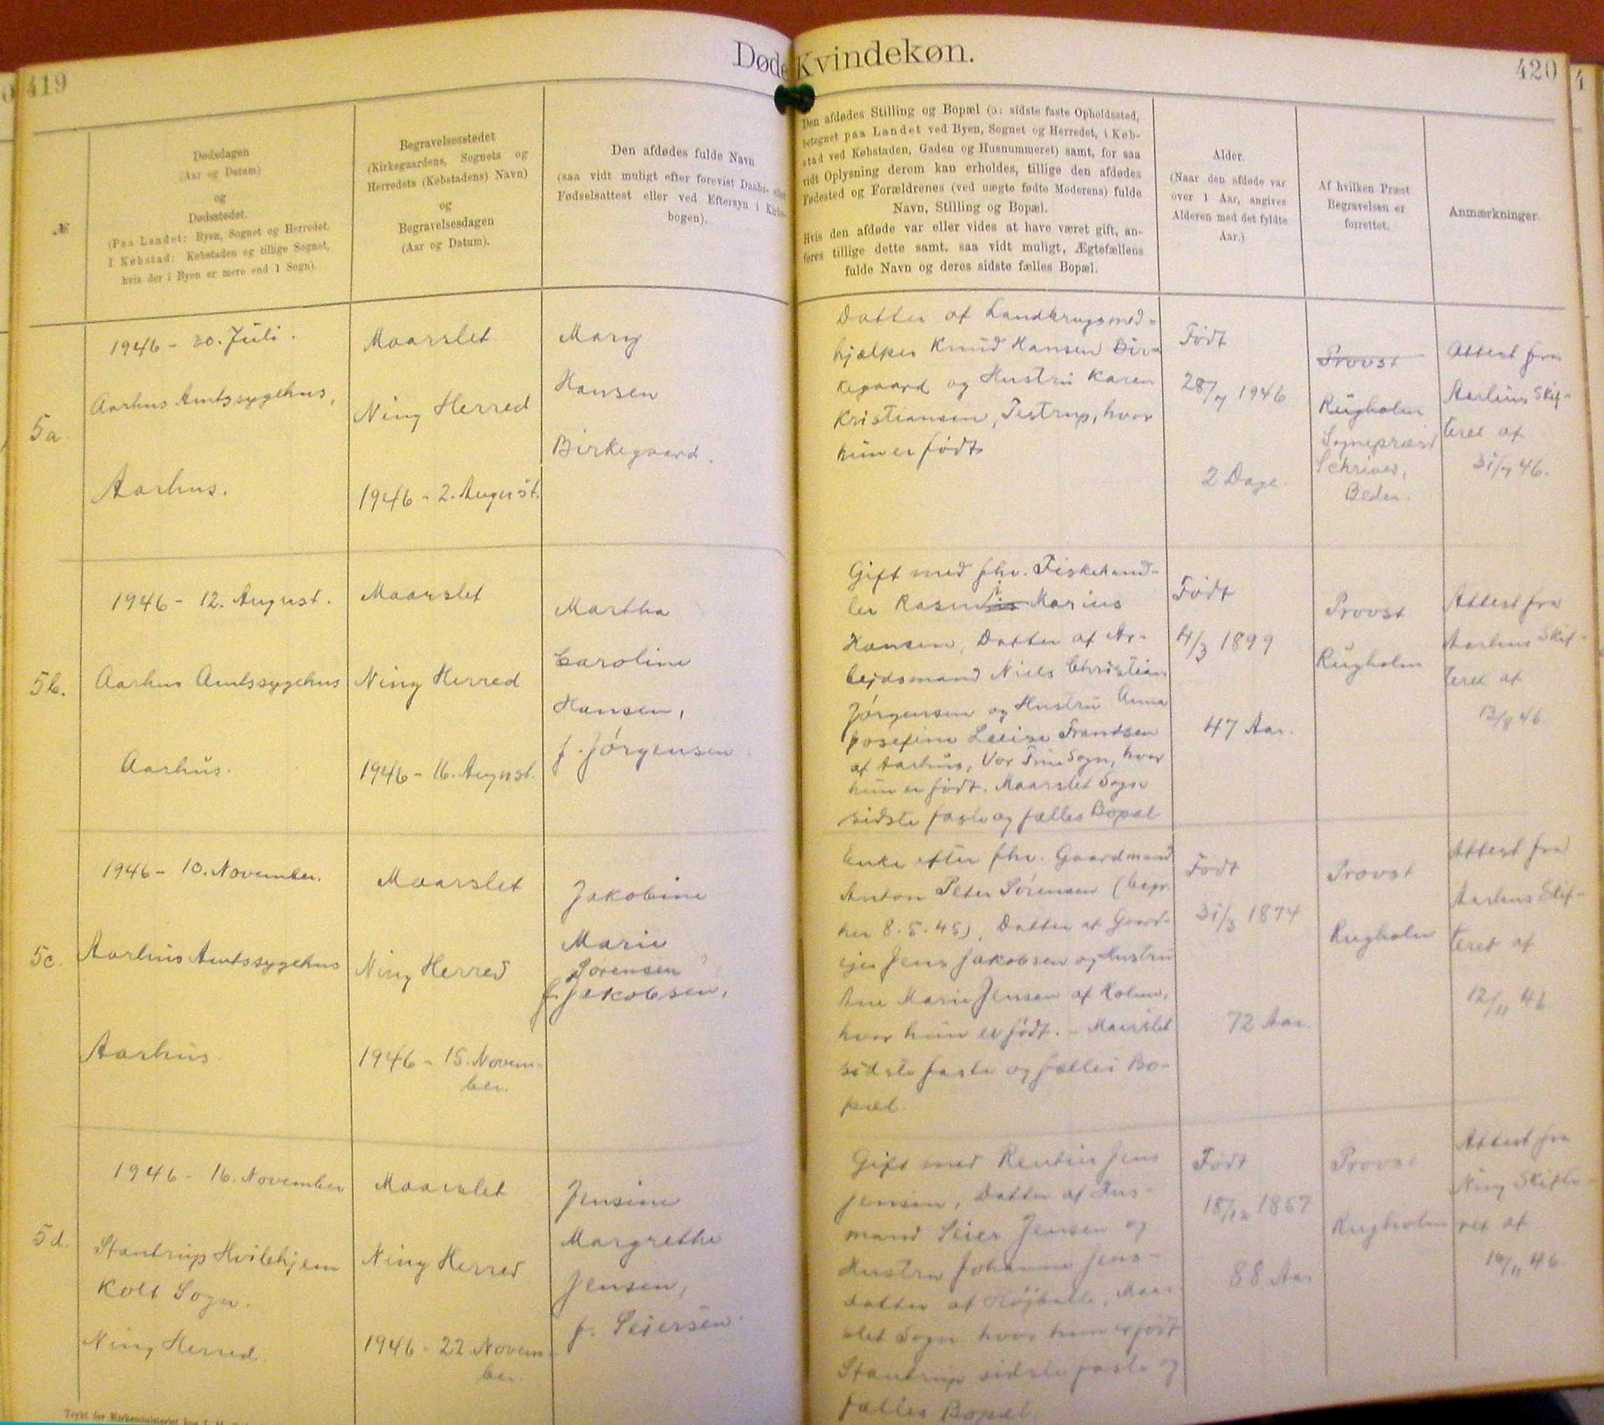 419
Døde Kvindekøn.
420
№
Dødsdagen
(Aar og Datum)
og
Dødsstedet.
(Paa Landet: Byen, Sognet og Herredet.
I Købstad: Købstaden og tillige Sognet,
hvis der i Byen er mere end 1 Sogn).
Begravelsesstedet
(Kirkegaardens, Sognets og
Herredets (Købstadens) Navn)
og
Begravelsesdagen
(Aar og Datum).
Den afdødes fulde Navn
(saa vidt muligt efter forevist Daabs- eller
Fødselsattest eller ved Eftersyn i Kirke-
bogen).
Den afdødes Stilling og Bopæl (ɔ: sidste faste Opholdssted,
betegnet paa Landet ved Byen, Sognet og Herredet, i Køb-
stad ved Købstaden, Gaden og Husnummeret) samt, for saa
vidt Oplysning derom kan erholdes, tillige den afdødes
Fødested og Forældrenes (ved uægte fødte Moderens) fulde
Navn, Stilling og Bopæl.
Hvis den afdøde var eller vides at have været gift, an-
føres tillige dette samt, saa vidt muligt, Ægtefællens
fulde Navn og deres sidste fælles Bopæl.
Alder.
(Naar den afdøde var
over 1 Aar, angives
Alderen med det fyldte
Aar.)
Af hvilken Præst
Begravelsen er
forrettet.
Anmærkninger.
5a
1946 - 30. Juli.
Aarhus Amtssygehus,
Aarhus.
Maarslet
Ning Herred
1946 - 2. August.
Mary
Hansen
Birkegaard.
Datter af Landbrugsmed-
hjælper Knud Hansen Bir-
kegaard og Hustru Karen
Kristiansen, Testrup, hvor
hun er født
Født
28/7 1946
2 Dage
Provst
Rugholm
Sognepræst
Schriver,
Beder.
Attest fra
Aarhus Skif-
teret af
31/7 46.
5b.
1946 - 12. August.
Aarhus Amtssygehus
Aarhus.
Maarslet
Ning Herred
1946 - 16. August.
Martha
Caroline
Hansen,
f. Jørgensen
Gift med fhv. Fiskehand-
ler Rasmus Marius
Hansen, Datter af Ar-
bejdsmand Niels Christian
Jørgensen og Hustru Anna
Josefine Lovise Frandsen
af Aarhus, Vor Frue Sogn, hvor
hun er født. Maarslet Sogn
sidste faste og fælles Bopæl
Født
4/3 1899
47 Aar.
Provst
Rugholm
Attest fra
Aarhus Skif-
teret af
13/8 46
5c.
1946 - 10. November.
Aarhus Amtssygehus
Aarhus.
Maarslet
Ning Herred
1946 - 15. Novem-
ber.
Jakobine
Marie
Sørensen
f. Jakobsen,
Enke efter fhv. Gaardmand
Anton Peter Sørensen (begr.
her 8.5.45), Datter af Gaard-
ejer Jens Jakobsen og Hustru
Ane Marie Jensen af Holme,
hvor hun er født. - Maarslet
sidste faste og fælles Bo-
pæl.
Født
31/3 1874
72 Aar.
Provst
Rugholm
Attest fra
Aarhus Skif-
teret af
12/11 46
5d.
1946 - 16. November
Stautrup Hvilehjem
Kolt Sogn.
Ning Herred.
Maarslet
Ning Herred
1946 - 22 Novem-
ber.
Jensine
Margrethe
Jensen,
f. Seiersen
Gift med Rentier Jens
Jensen, Datter af Hus-
mand Seier Jensen og
Hustru Johanne Jens-
datter af Højballe, Maar-
slet Sogn hvor hun er født
Stautrup sidste faste og
fælles Bopæl.
Født
18/12 1857
88 Aar
Provst
Rugholm
Attest fra
Ning Skifte-
ret af
19/11 46